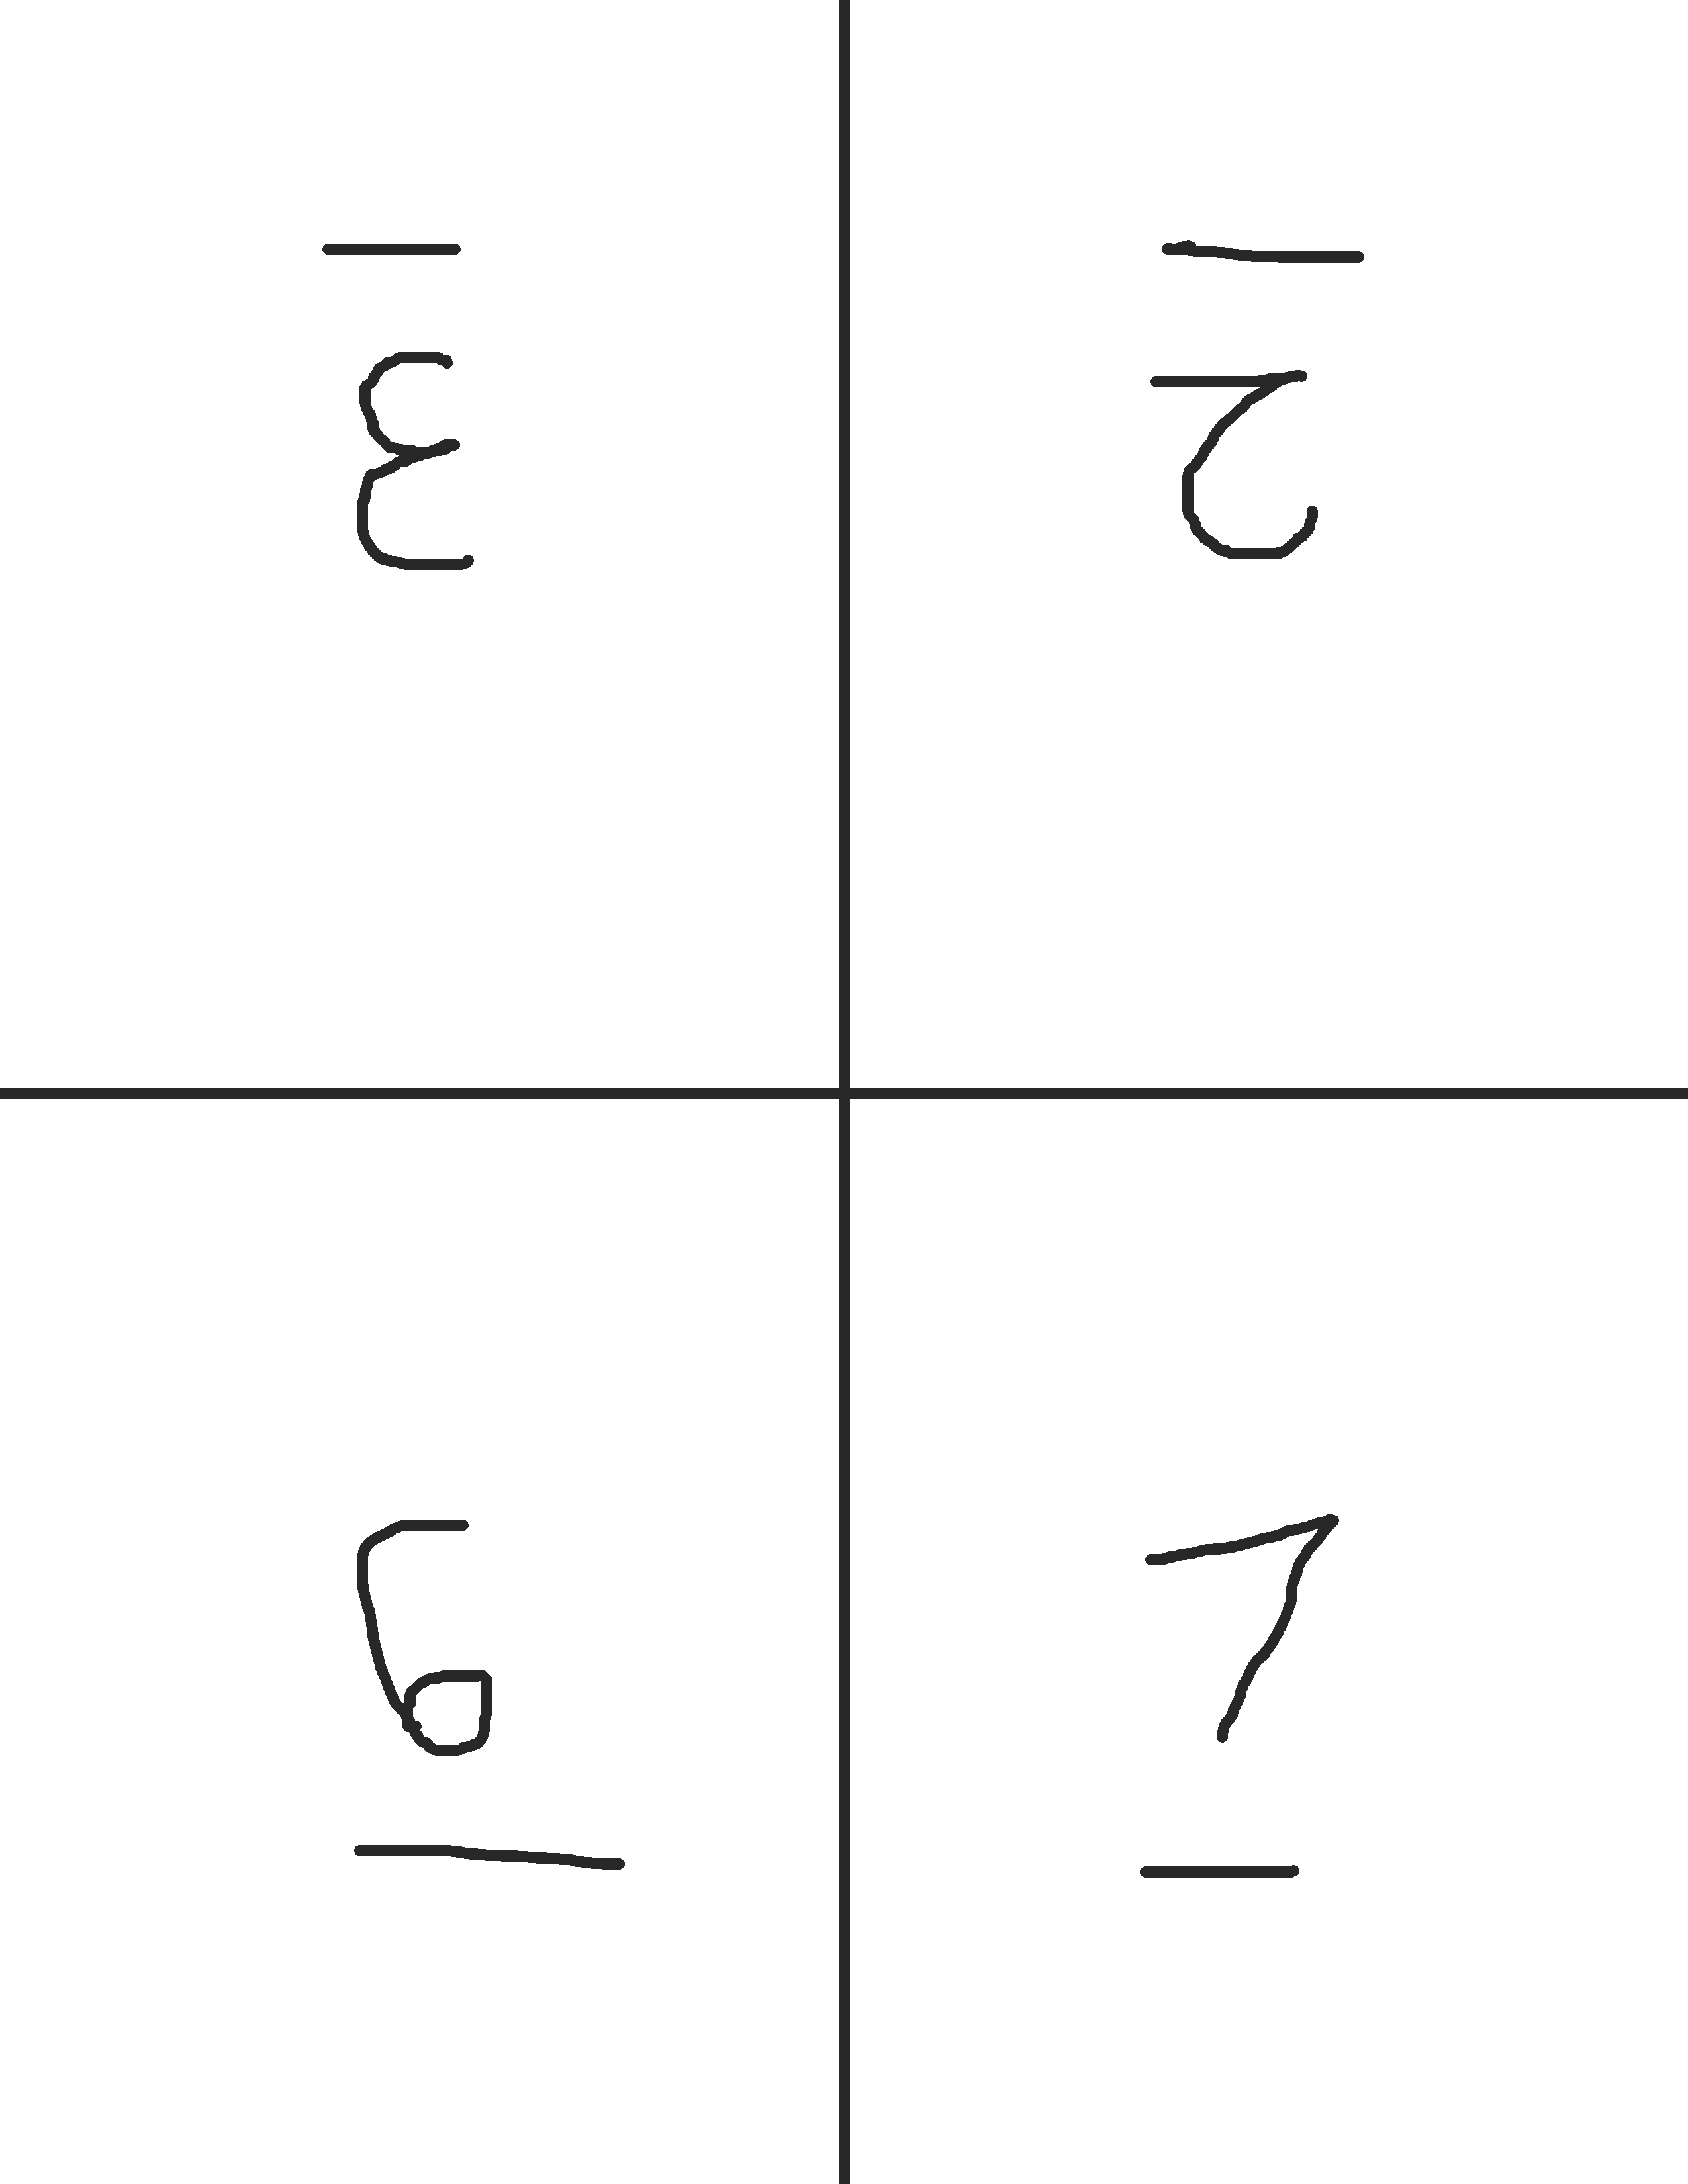 3 2
6 7